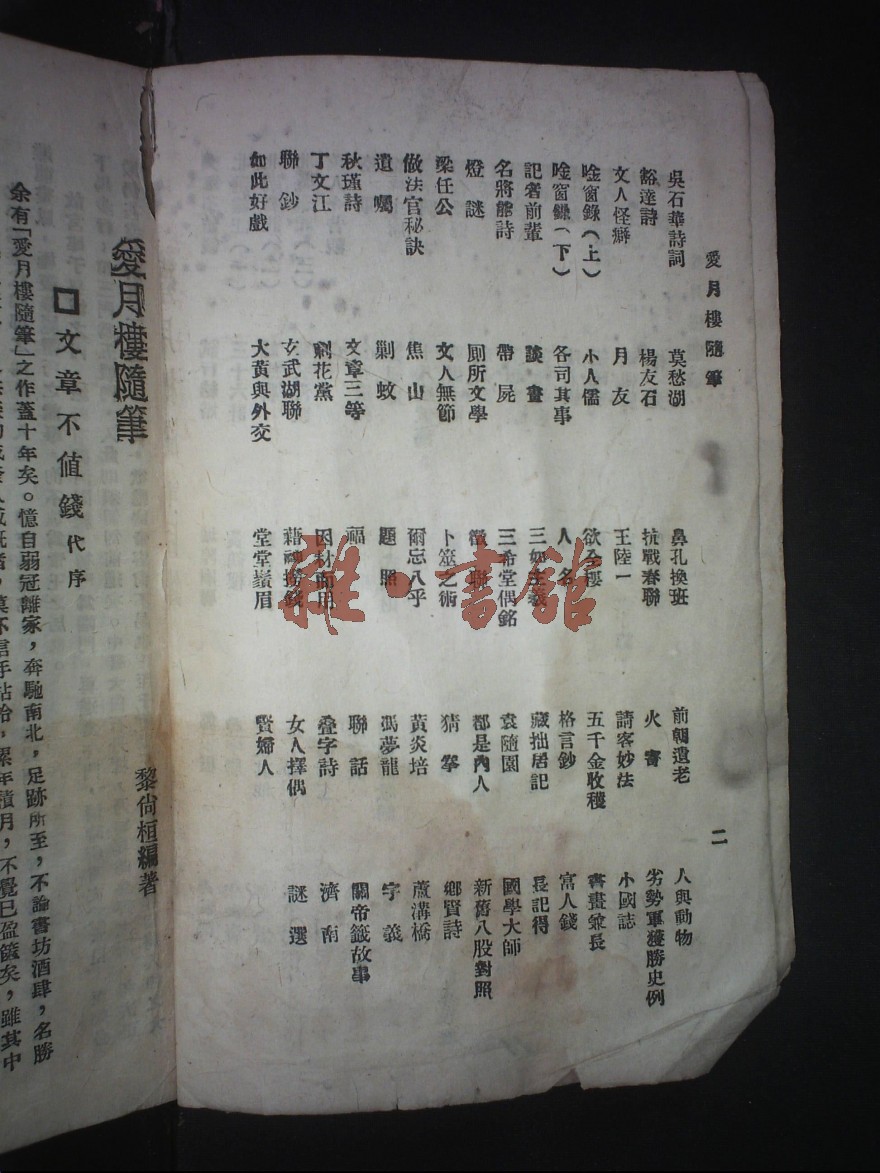 愛月樓隨筆
二
吳石華詩詞
豁達詩
文人怪癖
唫窗錄（上）
唫窗錄（下）
記者前輩
名將能詩
燈謎
梁任公
做法官秘訣
遺囑
秋瑾詩
丁文江
聯鈔
如此好戲
莫愁湖
楊友石
月友
小人儒
各司其事
談畫
帶屍
厠所文學
文人無節
焦山
剿蚊
文章三等
剜花黨
玄武湖聯
大黃與外交
鼻孔換班
抗戰春聯
王陸一
人名
三希堂偶銘
卜筮之術
爾忘八乎
題照
福
堂堂鬚眉
前朝遺老
火審
請客妙法
五千金收穫
格言鈔
藏拙居記
袁隨園
都是內人
猜拳
黃炎培
馮夢龍
聯話
叠字詩
女人擇偶
賢婦人
人與動物
劣勢軍獲勝史例
小國誌
書畫兼長
富人錢
長記得
國學大師
新舊八股對照
鄉賢詩
蘆溝橋
字義
關帝籤故事
濟南
謎選
愛月樓隨筆
黎尙桓編著
文章不值錢 代序
余有「愛月樓隨筆」之作蓋十年矣。憶自弱冠離家，奔馳南北，足跡所至，不論書坊酒肆，名勝
累年積月，不覺已盈篋矣，雖其中
雜·書館